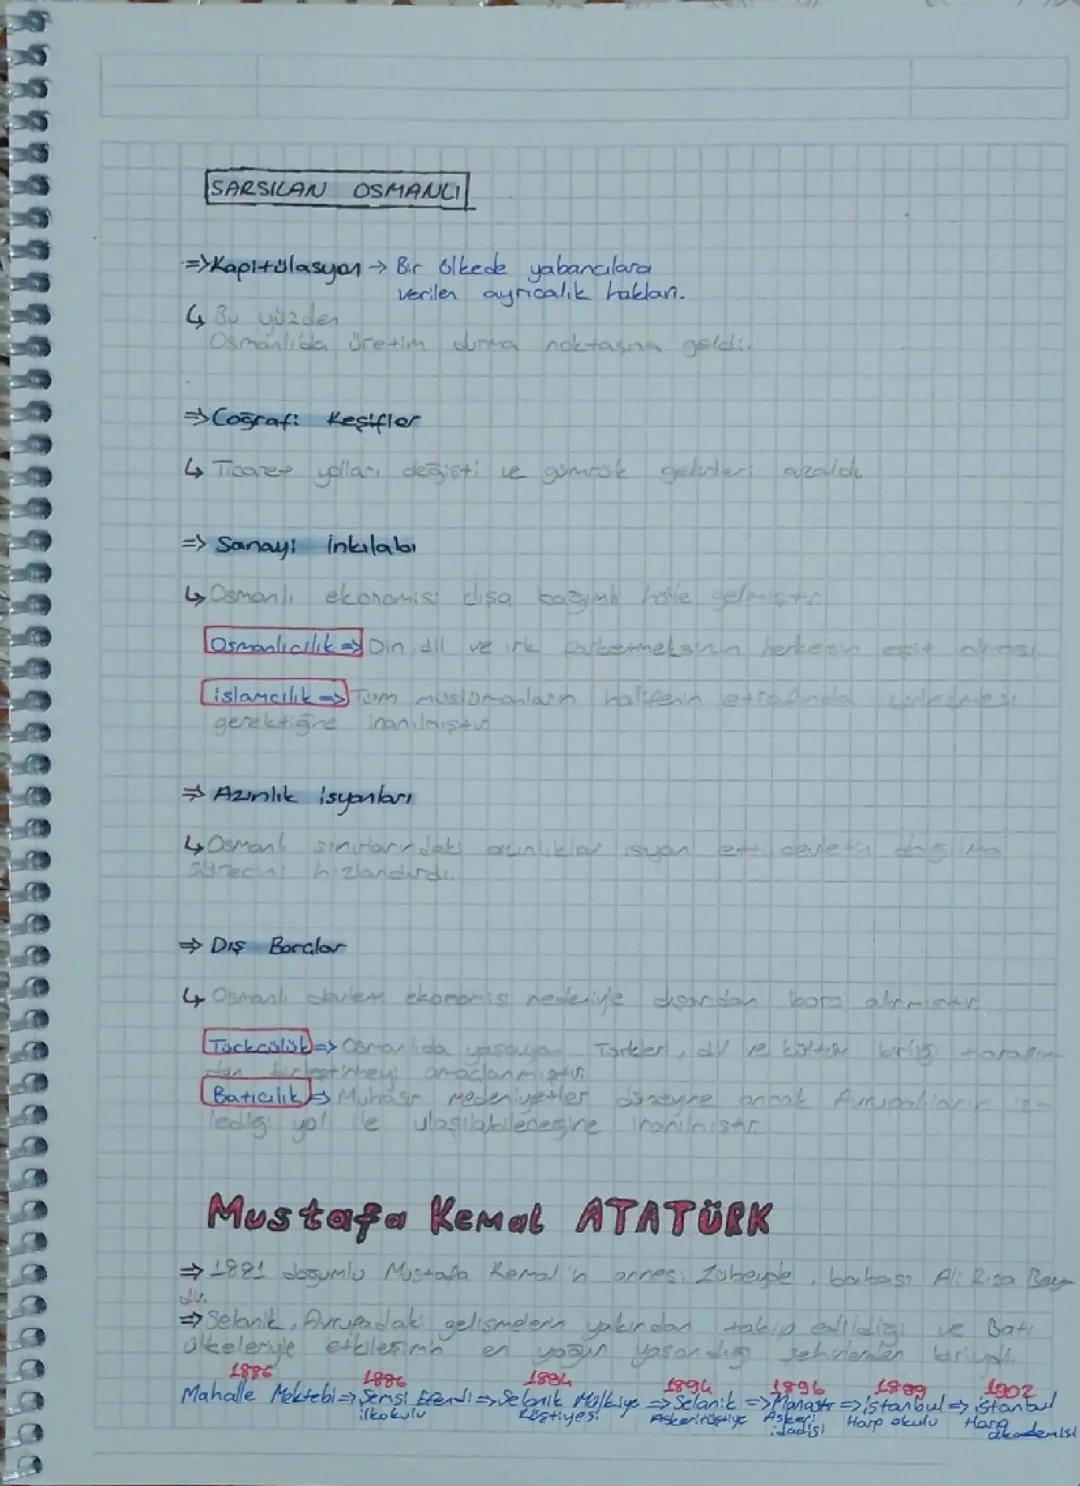 SARSILAN OSMANLI
=> Kapitülasyon → Bir ülkede yabancılara
verilen ayrıcalık hakları.
↳ Bu yüzden
Osmanlıda üretim durma noktasına geldi.
=> Coğrafi Keşifler
↳ Ticaret yolları değişti ve gümrük gelirleri azaldı
=> Sanayi inkılabı
↳ Osmanlı ekonomisi dışa bağımlı hale gelmiştir
Osmanlıcılık => Din, dil ve ırk farketmeksizin herkesin eşit olması.
islamcılık => Tüm müslümanların halifenin etrafında birleşmesi
gerektiğine inanılmıştır
=> Azınlık isyanları
↳ Osmanlı sınırlarındaki azınlıklar isyan etti devletin dağılma
sürecini hızlandırdı.
=> Dış Borçlar
↳ Osmanlı ekonomisi nedeniyle dışarıdan borç alınmıştır
Türkçülük => Osmanlıda yaşayan Türkleri, dil ve kültür birliği tarafın-
dan birleştirmeyi amaçlanmıştır
Batıcılık => Muhasır medeniyetler düzeyine ancak Avrupalıların iz-
lediği yol ile ulaşılabileceğine inanılmıştır
Mustafa Kemal ATATÜRK
=> 1881 doğumlu Mustafa Kemal'in annesi Zübeyde, babası Ali Rıza Bey-
dir.
=> Selanik, Avrupadaki gelişmelerin yakından takip edildiği ve Batı
ülkeleriyle etkileşimin en yoğun yaşandığı şehirlerden biriydi.
1886 1886 1894 1894 1896 1899 1902
Mahalle Mektebi => Şemsi Efendi => Selanik Mülkiye => Selanik => Manastır => istanbul => istanbul
ilkokulu Rüştiyesi Askeri rüştiye Askeri Harp okulu Harp
idadisi akademisi